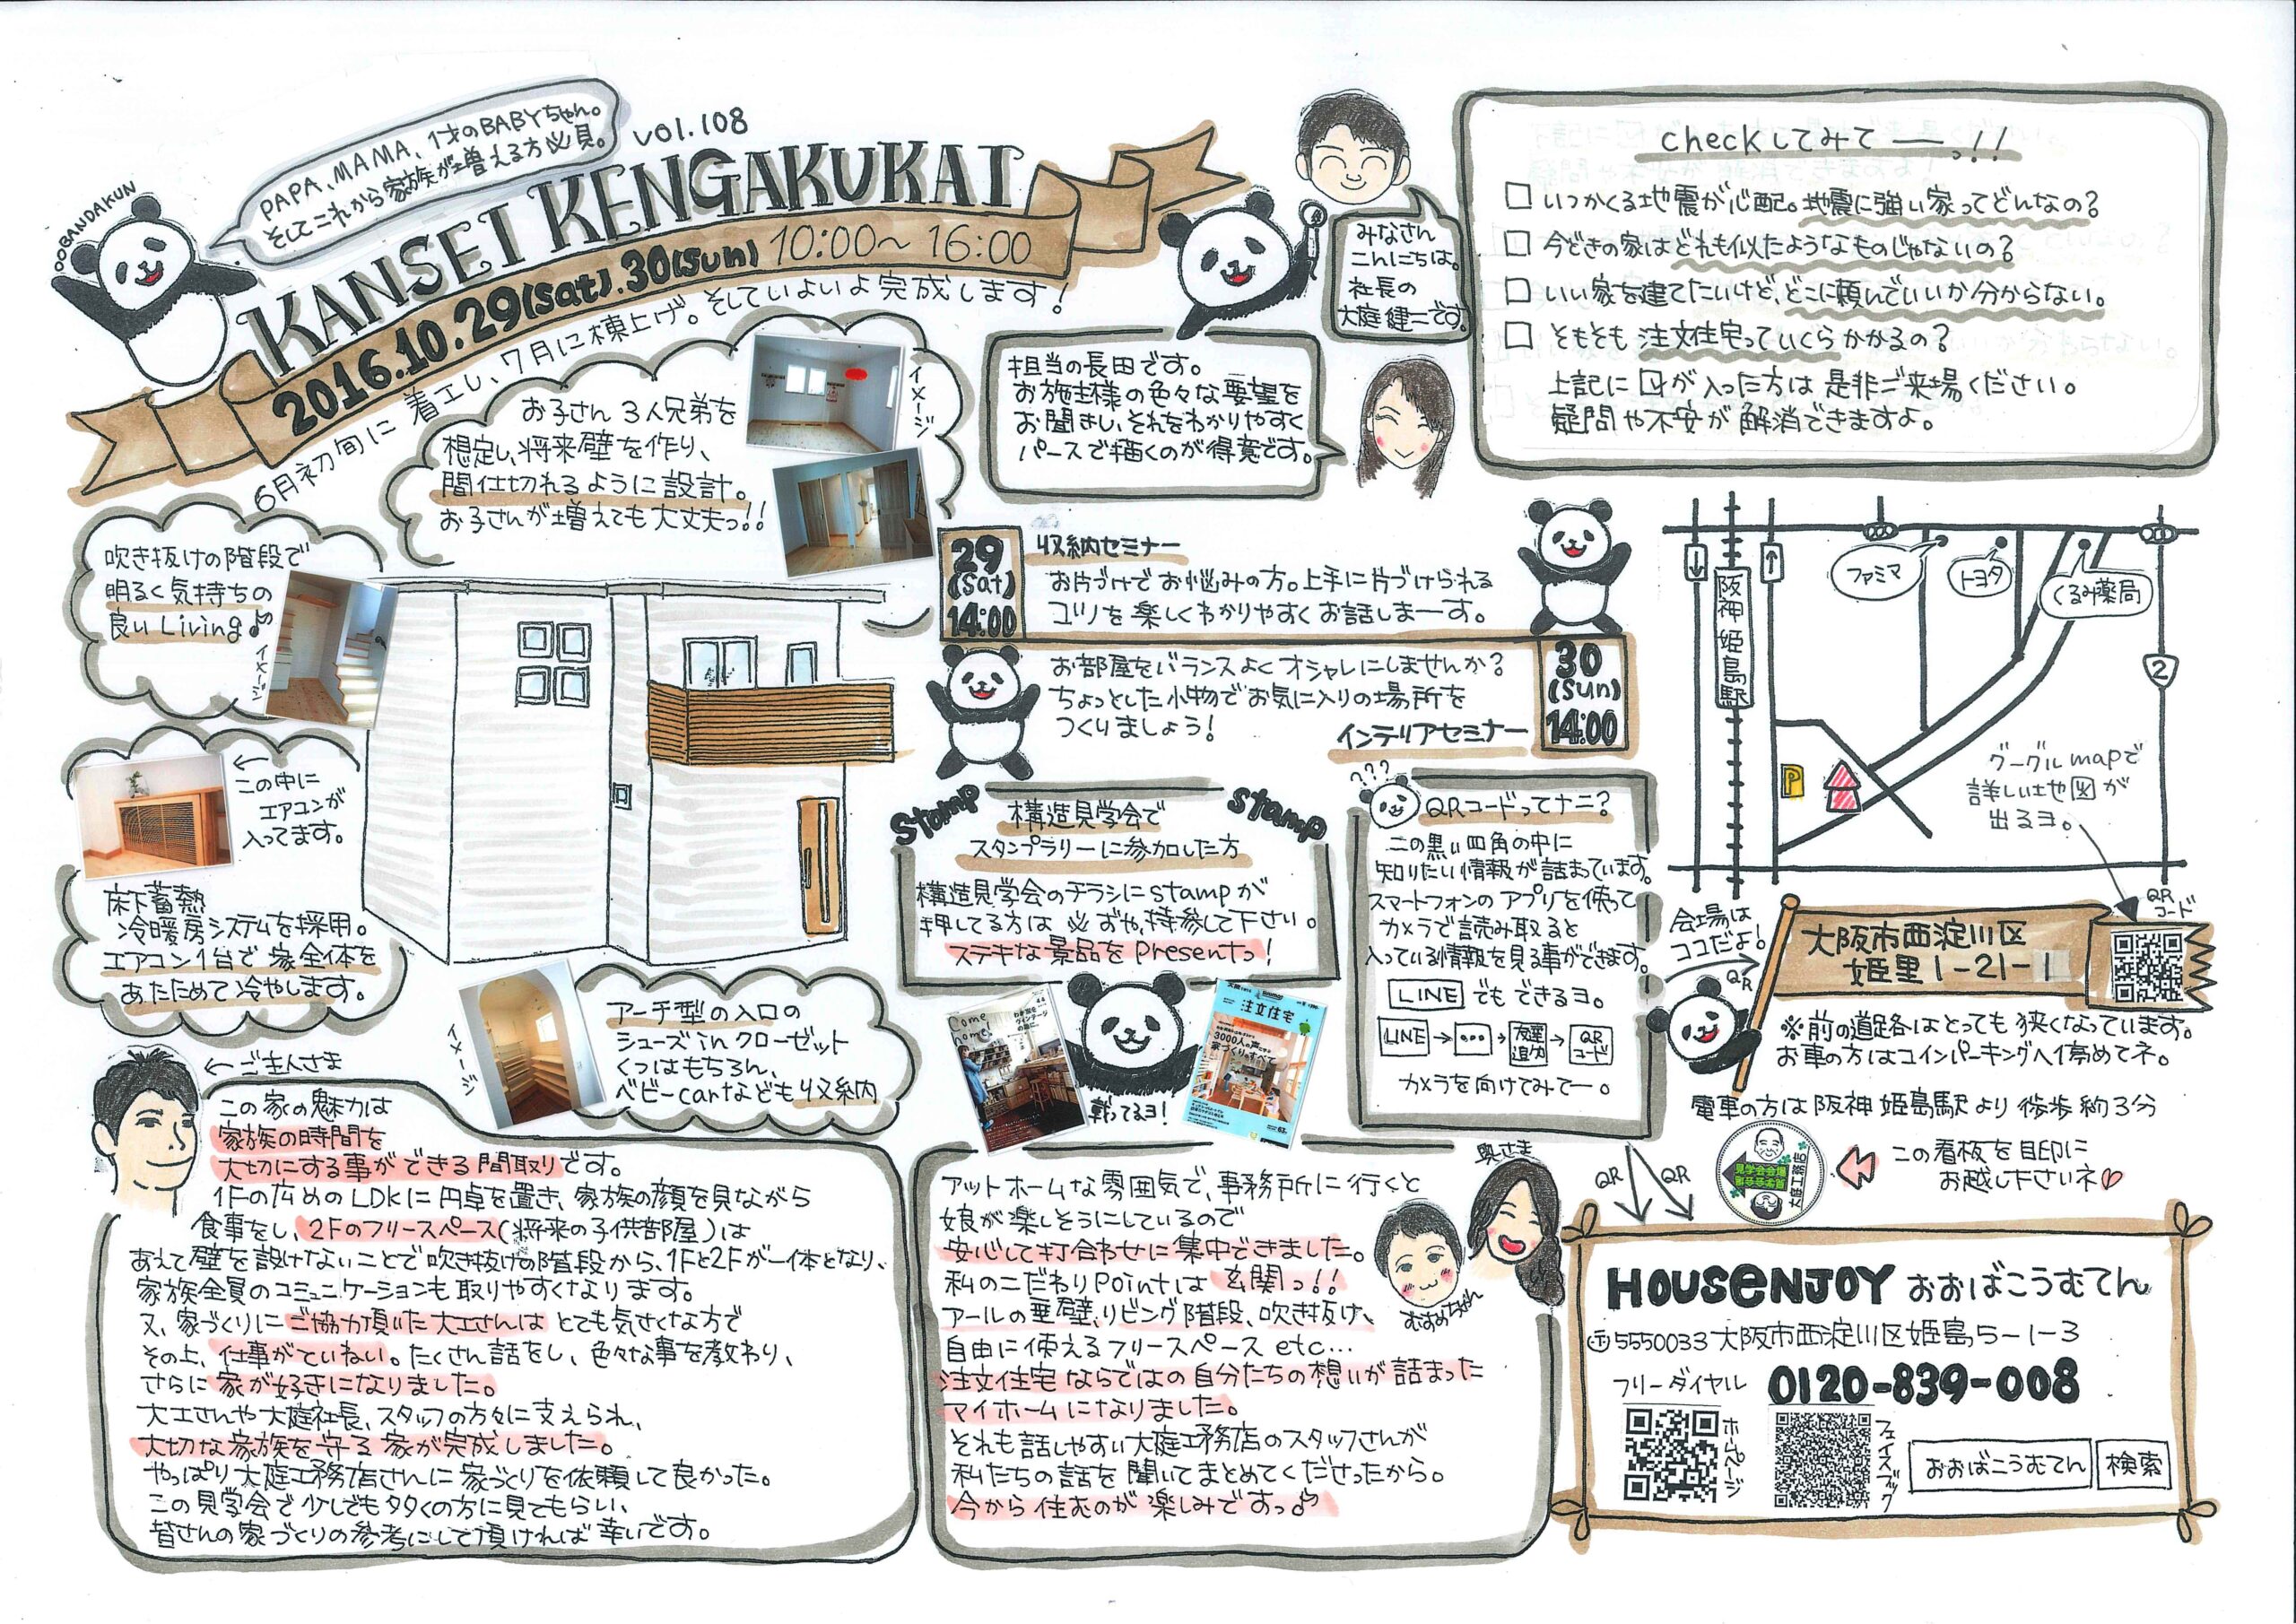 PAPA、MAMA、1才のBABYちゃん。
そしてこれから家族が増える方必見。
vol.108
OOBANDAKUN
KANSEI KENGAKUKAI
2016.10.29(sat).30(sun) 10:00〜16:00
6月初旬に着工し、7月に棟上げ。そしていよいよ完成します!
みなさん
こんにちは。
社長の
大庭健二です。
担当の長田です。
お施主様の色々な要望を
お聞きし、それをわかりやすく
パースで描くのが得意です。
checkしてみて―っ!!
□ いつかくる地震が心配。地震に強い家ってどんなの?
□ 今どきの家はどれも似たようなものじゃないの?
□ いい家を建てたいけど、どこに頼んでいいか分からない。
□ そもそも注文住宅っていくらかかるの?
上記に☑が入った方は是非ご来場ください。
疑問や不安が解消できますよ。
お子さん3人兄弟を
想定し、将来壁を作り、
間仕切れるように設計。
お子さんが増えても大丈夫っ!!
イメージ
吹き抜けの階段で
明るく気持ちの
良いLiving♪
イメージ
←この中に
エアコンが
入ってます。
床下蓄熱
冷暖房システムを採用。
エアコン1台で家全体を
あたためて冷やします。
アーチ型の入口の
シューズinクローゼット
くつはもちろん、
ベビーcarなども収納
イメージ
29
(sat)
14:00
収納セミナー
お片づけでお悩みの方。上手に片づけられる
コツを楽しくわかりやすくお話しまーす。
お部屋をバランスよくオシャレにしませんか?
ちょっとした小物でお気に入りの場所を
つくりましょう!
インテリアセミナー
30
(sun)
14:00
stamp
stamp
構造見学会で
スタンプラリーに参加した方
構造見学会のチラシにstampが
押してる方は必ずお持参して下さい。
ステキな景品をpresentっ!
Come
home!
注文住宅
3000人の声
載ってるヨ!
???
QRコードってナニ?
この黒い四角の中に
知りたい情報が詰まっています。
スマートフォンのアプリを使って
カメラで読み取ると
入っている情報を見る事ができます。
LINEでもできるヨ。
LINE→…→友達追加→QRコード
カメラを向けてみてー。
ファミマ
トヨタ
くるみ薬局
阪神 姫島駅
2
P
グーグルmapで
詳しい地図が
出るヨ。
QRコード
会場は
ココだよ!
QR
大阪市西淀川区
姫里1-21-1
※前の道路はとっても狭くなっています。
お車の方はコインパーキングへ停めてネ。
電車の方は阪神姫島駅より徒歩約3分
見学会会場
大庭工務店
この看板を目印に
お越し下さいネ♡
QR
QR
←ご主人さま
この家の魅力は
家族の時間を
大切にする事ができる間取りです。
1Fの広めのLDKに円卓を置き、家族の顔を見ながら
食事をし、2Fのフリースペース(将来の子供部屋)は
あえて壁を設けないことで吹き抜けの階段から、1Fと2Fが一体となり、
家族全員のコミュニケーションも取りやすくなります。
又、家づくりにご協力頂いた大工さんはとても気さくな方で
その上、仕事がていねい。たくさん話をし、色々な事を教わり、
さらに家が好きになりました。
大工さんや大庭社長、スタッフの方々に支えられ、
大切な家族を守る家が完成しました。
やっぱり大庭工務店さんに家づくりを依頼して良かった。
この見学会で少しでも多くの方に見てもらい、
皆さんの家づくりの参考にして頂ければ幸いです。
奥さま
むすめちゃん
アットホームな雰囲気で、事務所に行くと
娘が楽しそうにしているので
安心して打合わせに集中できました。
私のこだわりPointは玄関っ!!
アールの垂壁、リビング階段、吹き抜け、
自由に使えるフリースペースetc…
注文住宅ならではの自分たちの想いが詰まった
マイホームになりました。
それも話しやすい大庭工務店のスタッフさんが
私たちの話を聞いてまとめてくださったから。
今から住むのが楽しみですっ♪
HOUSENJOY おおばこうむてん
〒5550033 大阪市西淀川区姫島5-1-3
フリーダイヤル 0120-839-008
ホームページ
フェイスブック
おおばこうむてん 検索